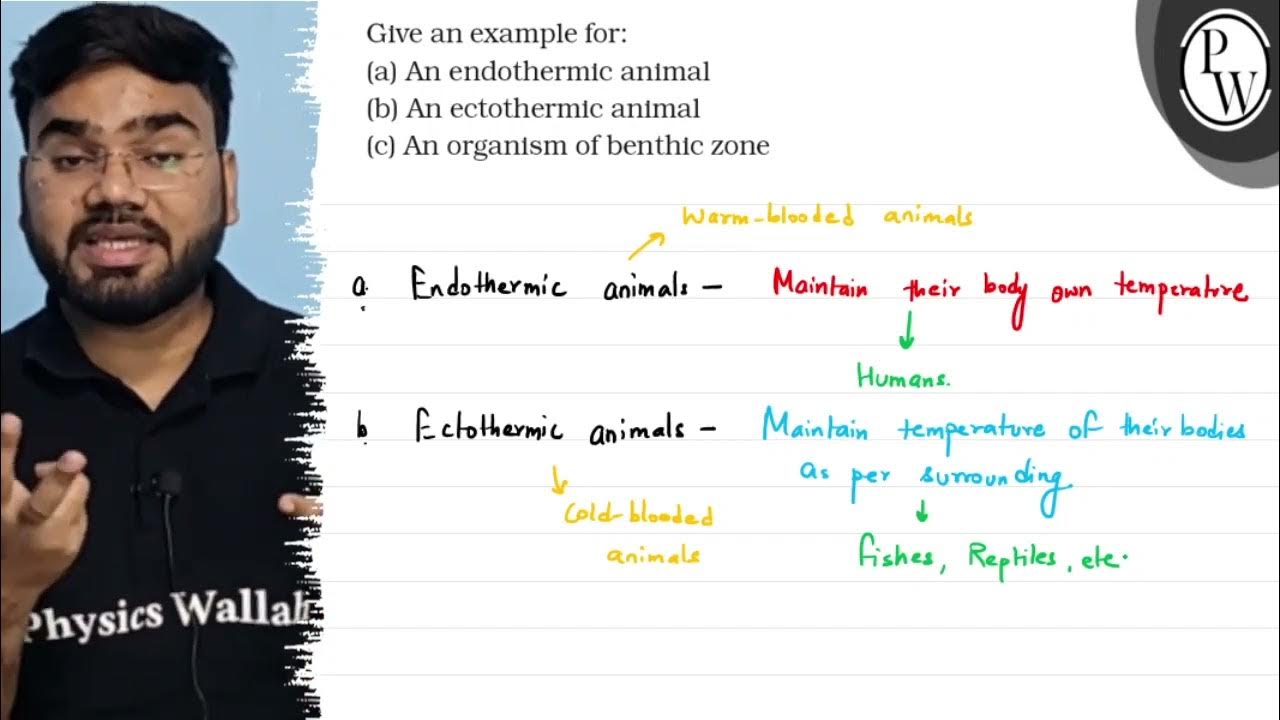 Give an example for:
(a) An endothermic animal
(b) An ectothermic animal
(c) An organism of benthic zone
PW
Warm-blooded animals
a. Endothermic animals - Maintain their body own temperature
Humans.
b. Ectothermic animals - Maintain temperature of their bodies
as per surrounding
Cold-blooded
animals
fishes, Reptiles, etc.
Physics Wallah